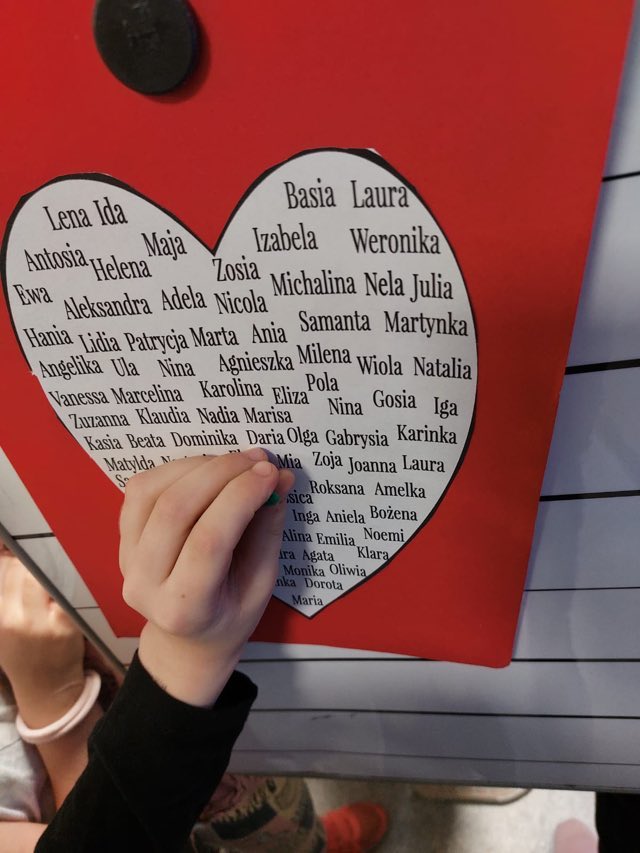 Basia Laura
Lena Ida
Izabela Weronika
Antosia Maja
Helena Zosia
Michalina Nela Julia
Ewa Aleksandra Adela Nicola
Samanta Martynka
Hania Lidia Patrycja Marta Ania
Angelika Ula Nina Agnieszka Milena Wiola Natalia
Vanessa Marcelina Karolina Eliza Pola
Nina Gosia Iga
Zuzanna Klaudia Nadia Marisa
Kasia Beata Dominika Daria Olga Gabrysia Karinka
Matylda Mia Zoja Joanna Laura
Roksana Amelka
Inga Aniela Bożena
Alina Emilia Noemi
Agata Klara
Monika Oliwia
Dorota
Maria